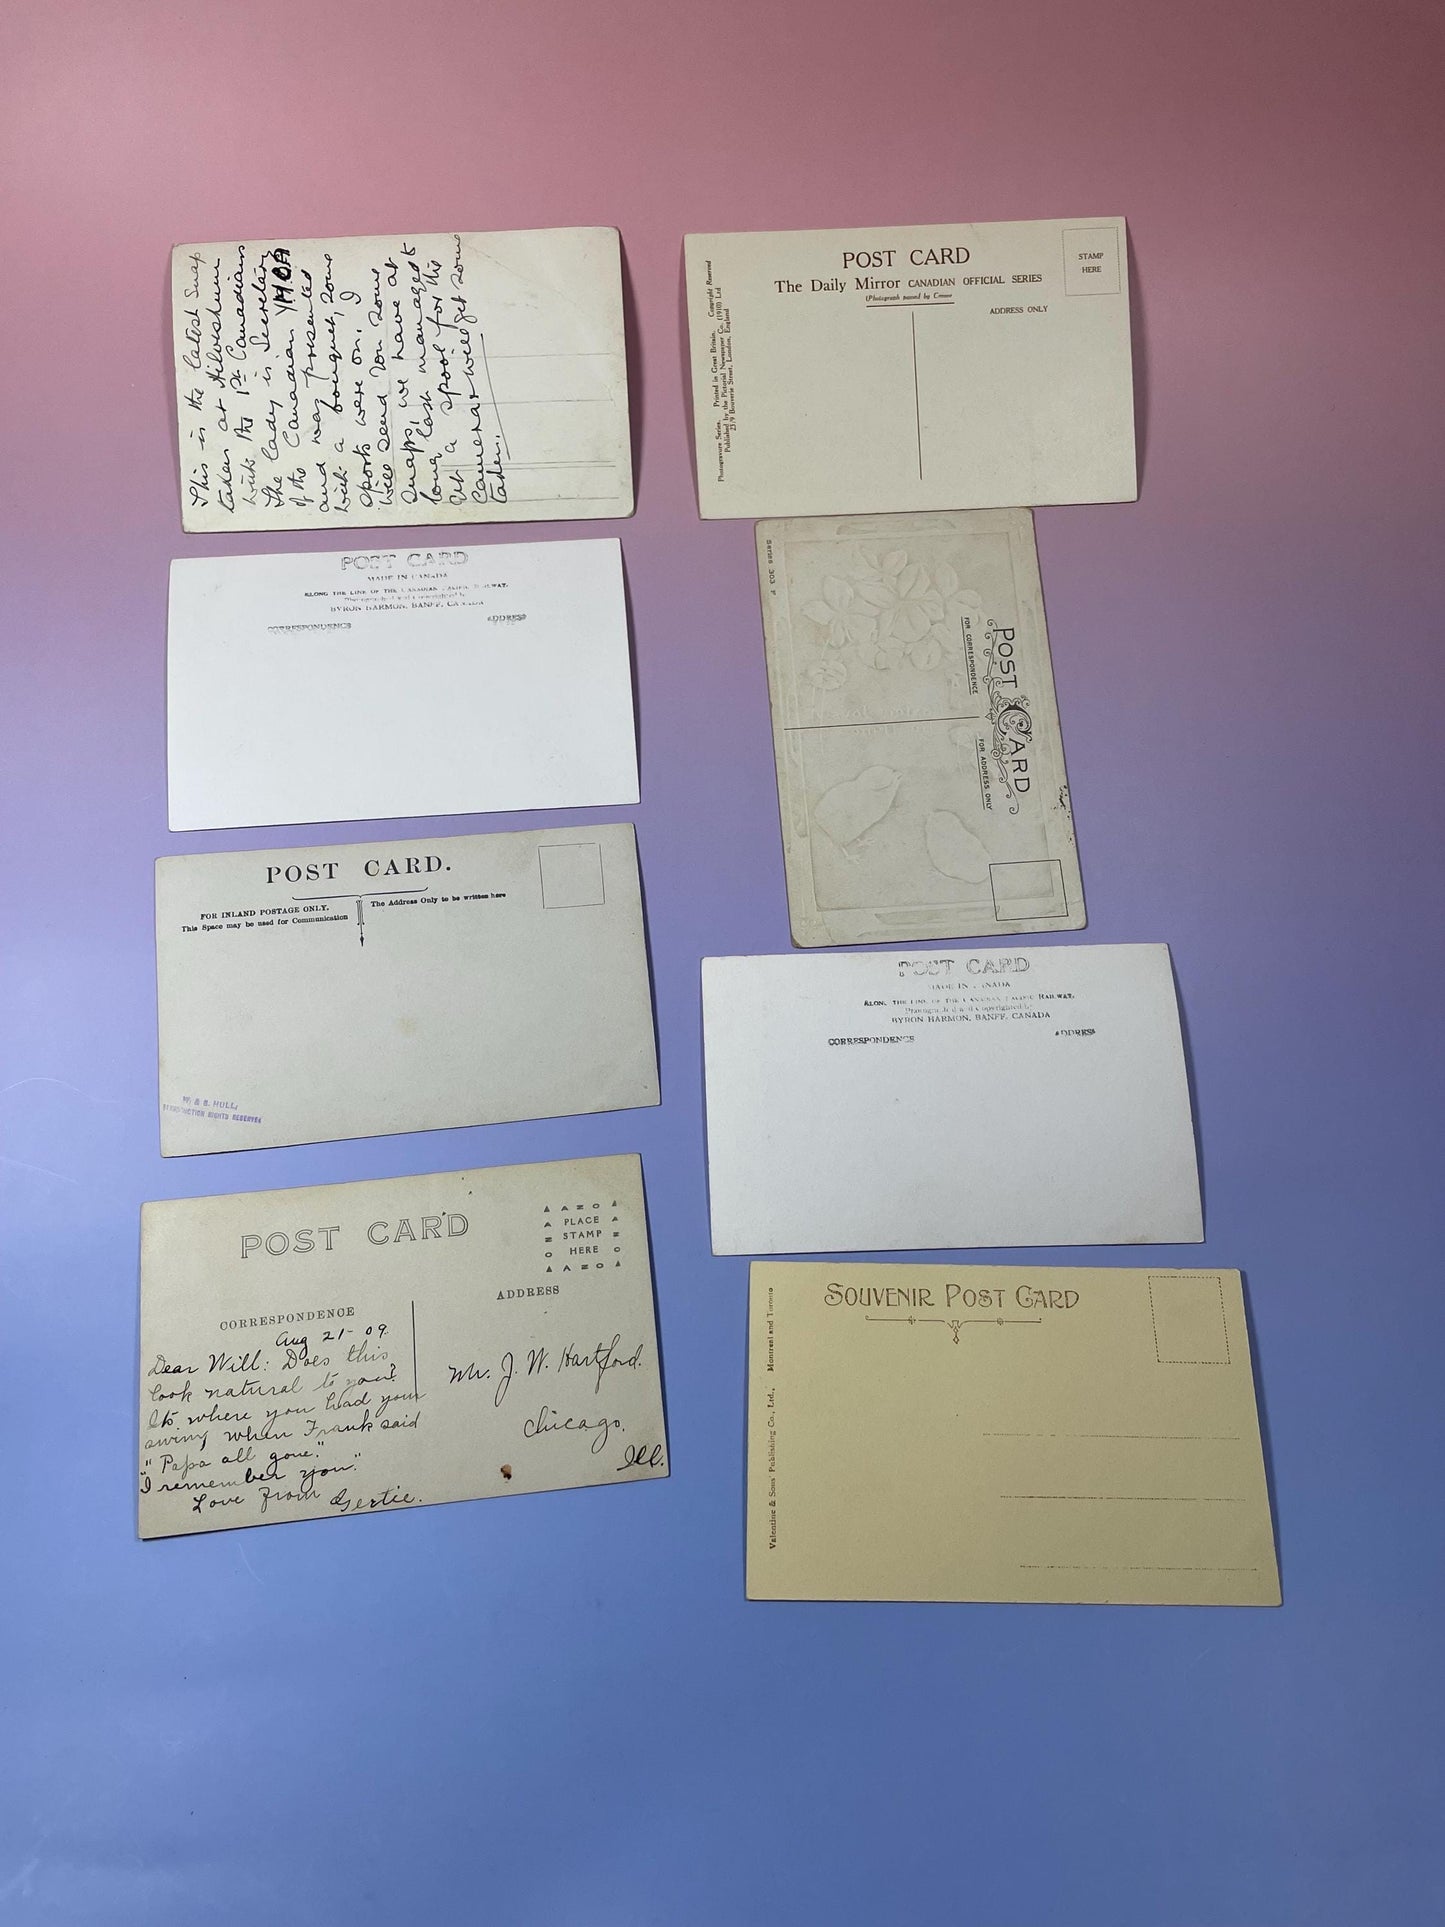 This is the latest Snap
taken at Hilversham
with the 1st Canadians
The lady is Secretary
of the Canadian YMCA
and was presented
with a bouquet, some
sports were on. I
will send you some
snaps, we have at
long last managed to
get a spool for the
Camera & will get some
taken.
POST CARD
The Daily Mirror CANADIAN OFFICIAL SERIES
(Photograph passed by Censor
ADDRESS ONLY
STAMP
HERE
Photogravure Series. Printed in Great Britain. Copyright Reserved
Published by the Pictorial Newspaper Co. (1910) Ltd
23/9 Bouverie Street, London, England
POST CARD
MADE IN CANADA
ALONG THE LINE OF THE CANADIAN PACIFIC RAILWAY.
Photographed and Copyrighted by
BYRON HARMON, BANFF, CANADA
CORRESPONDENCE
ADDRESS
Series 303 F
POST CARD
FOR CORRESPONDENCE
FOR ADDRESS ONLY
POST CARD.
FOR INLAND POSTAGE ONLY.
This Space may be used for Communication
The Address Only to be written here
W. & B. HULL,
RIGHTS RESERVED
POST CARD
MADE IN CANADA
ALONG THE LINE OF THE CANADIAN PACIFIC RAILWAY.
Photographed and Copyrighted by
BYRON HARMON, BANFF, CANADA
CORRESPONDENCE
ADDRESS
POST CARD
AZO
PLACE
STAMP
HERE
AZO
CORRESPONDENCE
ADDRESS
Aug 21-09.
Dear Will: Does this
look natural to you?
Its where you had your
swing when Frank said
"Papa all gone."
"I remember you."
Love from Gertie.
Mr. J. W. Hartford.
Chicago.
Ill.
SOUVENIR POST CARD
Valentine & Sons' Publishing Co., Ltd., Montreal and Toronto